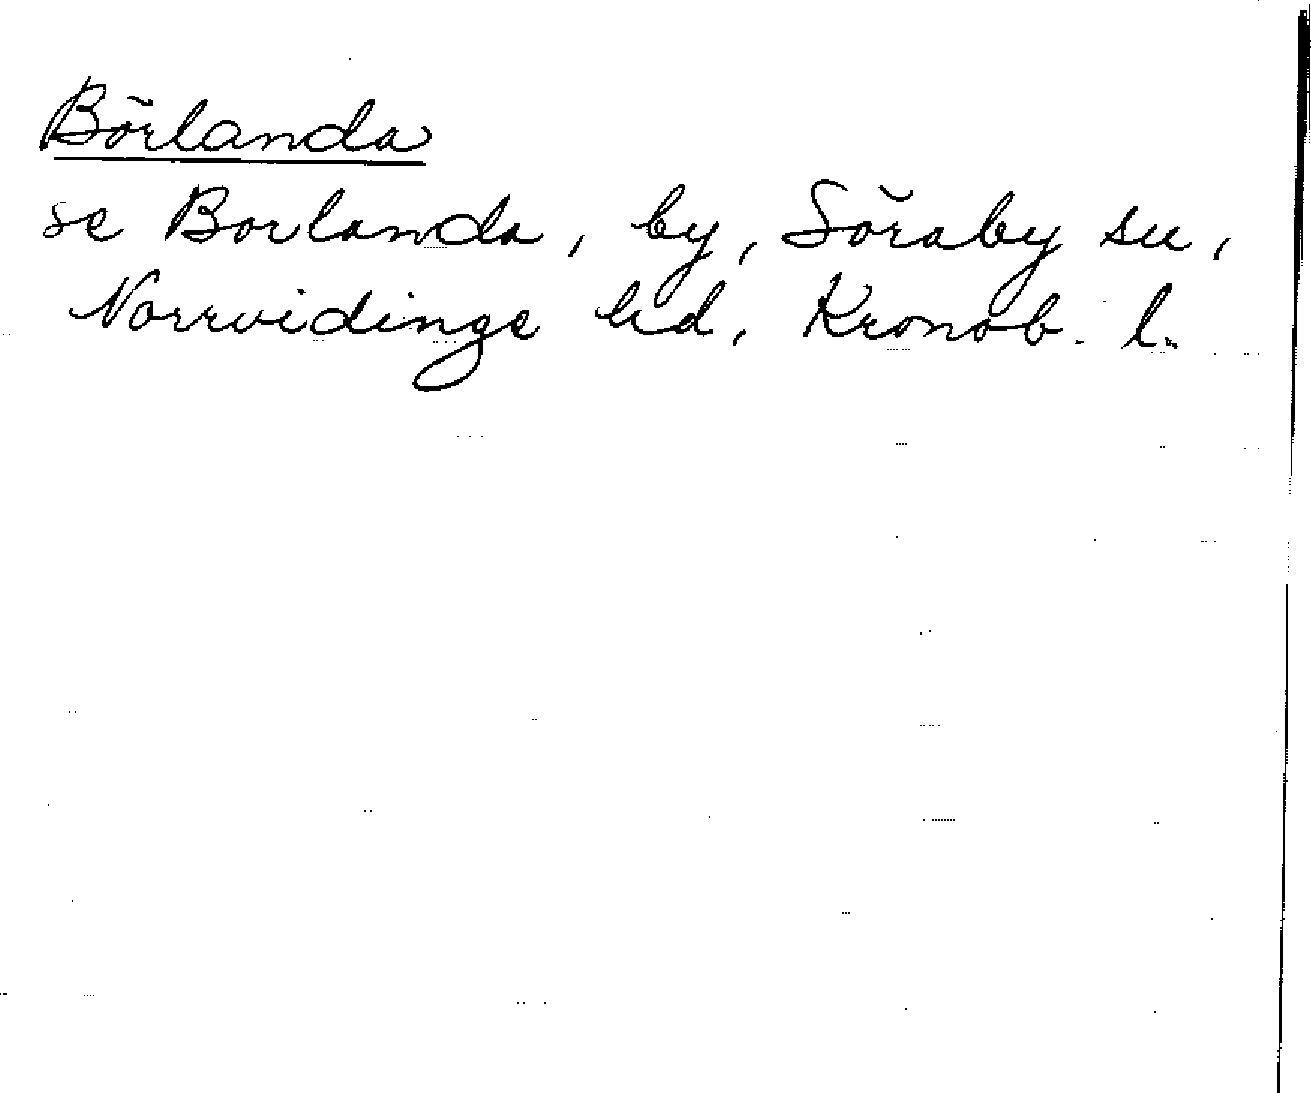 Börlanda
se Borlanda, by, Söraby sn,
Norrvidinge hd, Kronob. l.